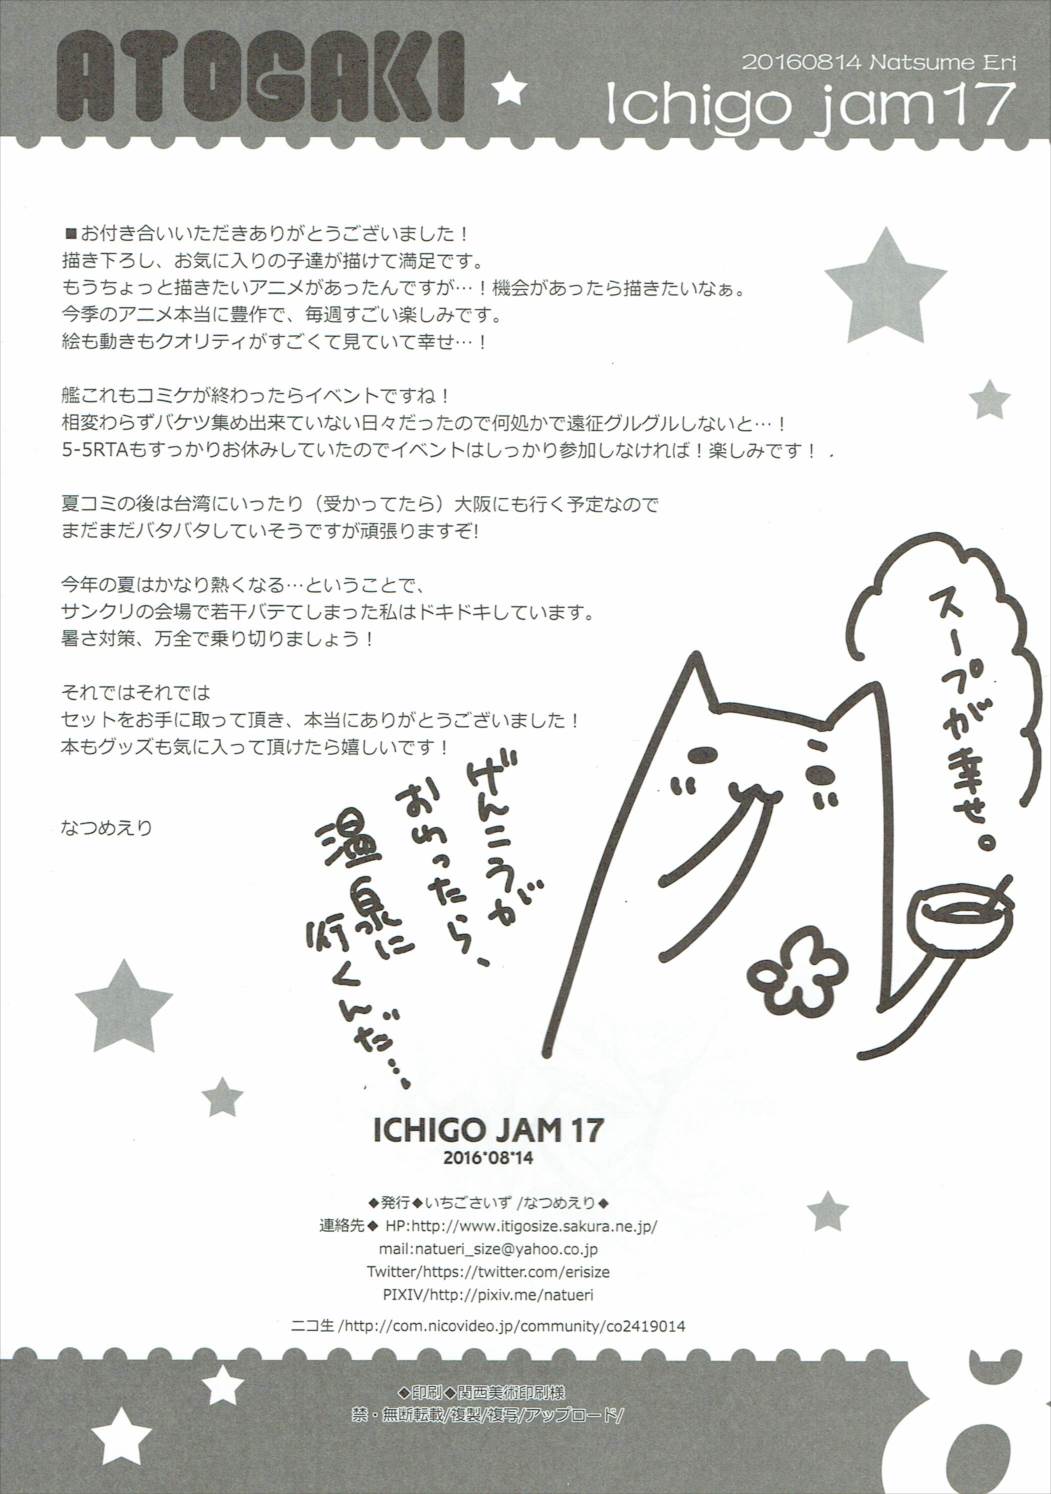 ATOGAKI
20160814 Natsume Eri
Ichigo jam17
■お付き合いいただきありがとうございました！
描き下ろし、お気に入りの子達が描けて満足です。
もうちょっと描きたいアニメがあったんですが…！機会があったら描きたいなぁ。
今季のアニメ本当に豊作で、毎週すごい楽しみです。
絵も動きもクオリティがすごくて見ていて幸せ…！
艦これもコミケが終わったらイベントですね！
相変わらずバケツ集め出来ていない日々だったので何処かで遠征グルグルしないと…！
5-5RTAもすっかりお休みしていたのでイベントはしっかり参加しなければ！楽しみです！
夏コミの後は台湾にいったり（受かってたら）大阪にも行く予定なので
まだまだバタバタしていそうですが頑張りますぞ!
今年の夏はかなり熱くなる…ということで、
サンクリの会場で若干バテてしまった私はドキドキしています。
暑さ対策、万全で乗り切りましょう！
それではそれでは
セットをお手に取って頂き、本当にありがとうございました！
本もグッズも気に入って頂けたら嬉しいです！
なつめえり
スープが幸せ。
げんこうが
おわったら、
温泉に
行くんだ…。
ICHIGO JAM 17
2016*08*14
◆発行◆いちごさいず /なつめえり◆
連絡先◆ HP:http://www.itigosize.sakura.ne.jp/
mail:natueri_size@yahoo.co.jp
Twitter/https://twitter.com/erisize
PIXIV/http://pixiv.me/natueri
ニコ生/http://com.nicovideo.jp/community/co2419014
◆印刷◆関西美術印刷様
禁・無断転載/複製/複写/アップロード/